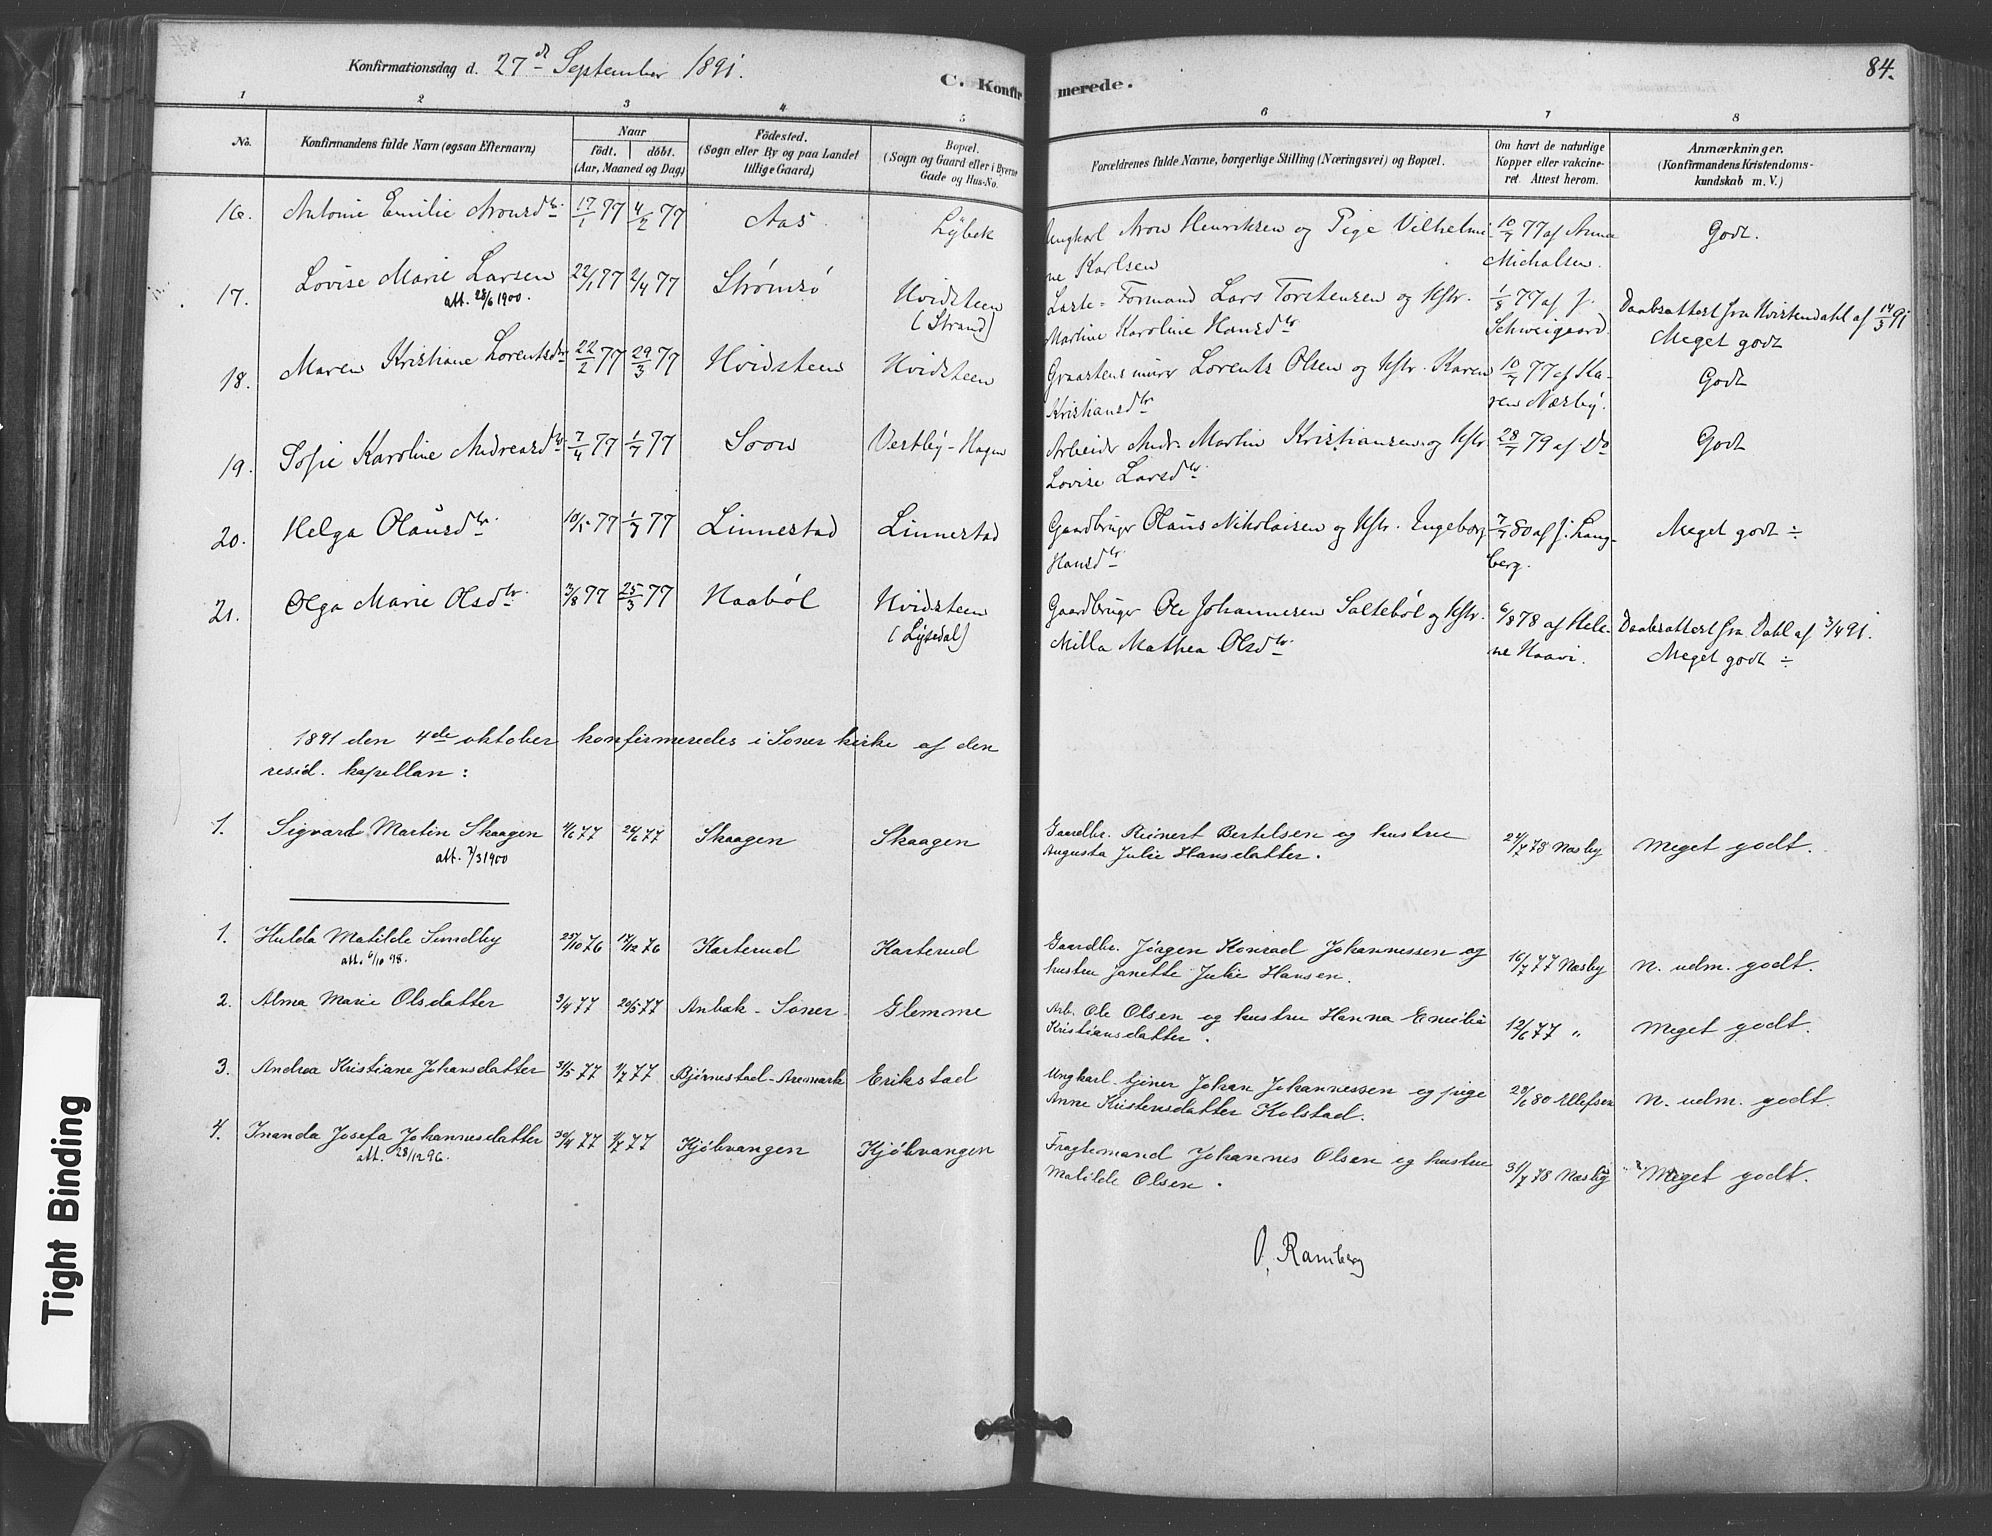 Konfirmationsdag d. 27de September 1891.
C. Konfirmerede.
84.
1 2 3 4 5 6 7 8
No.
Konfirmandens fulde Navn (ogsaa Efternavn)
Naar
födt. döbt.
(Aar, Maaned og Dag)
Födested.
(Sogn eller By og paa Landet
tillige Gaard)
Bopæl.
(Sogn og Gaard eller i Byerne
Gade og Hus-No.
Forældrenes fulde Navne, borgerlige Stilling (Næringsvei) og Bopæl.
Om havt de naturlige
Kopper eller vakcine-
ret. Attest herom.
Anmærkninger.
(Konfirmandens Kristendoms-
kundskab m. V.)
16. Antonie Emilie Aronsdtr. 17/1 77 4/2 77 Aas Lÿbek Ungkarl Aron Henriksen og Pige Vilhelmi- 10/7 77 af Anna Godt.
ne Karlsen Michalsen.
17. Lovise Marie Larsen 22/1 77 2/4 77 Strömsö Hvidsteen Laste-Formand Lars Torstensen og Hstr. 1/8 77 af J. Daabsattest fra Kvistendahl af 14/3 91
att. 28/6 1900. (Strand) Martine Karoline Hansdtr Schweigaard. Meget godt
18. Maren Kristiane Lorentsdtr 22/2 77 29/3 77 Hvidsteen Hvidsteen Graasteensmurer Lorents Olsen og Hstr. Karen 10/7 77 af Ka- Godt
Kristiansdtr ren Næsbÿ.
19. Sofie Karoline Andreasdtr 7/4 77 1/7 77 Soon Vestbÿ-Hagen Arbeider Andr. Martin Kristiansen og Hstr 28/7 79 af Do Godt
Lovise Larsdtr.
20. Helga Olausdtr. 10/5 77 1/7 77 Linnestad Linnestad Gaardbruger Olaus Nikolaisen og Hstr. Ingeborg 7/7 80 af J. Lang- Meget godt ÷
Hansdtr. berg.
21. Olga Marie Olsdtr. 3/8 77 25/3 77 Haaböl Hvidsteen Gaardbruger Ole Johannesen Salteböl og Hstr. 6/8 78 af Hele- Daabsattest fra Dahl af 3/4 91.
(Lÿsedal) Milla Mathea Olsdtr. ne Haavi. Meget godt ÷
1891 den 4de oktober konfirmeredes i Soner kirke af den
resid. kapellan:
1. Sigvard Martin Skaagen 1/6 77 24/6 77 Skaagen Skaagen Gaardbr. Reinert Bertelsen og hustru 24/7 78 Næsby Meget godt.
att. 7/3 1900 Augusta Julie Hansdatter.
1. Hulda Matilde Sundby 25/10 76 17/12 76 Karterud Karterud Gaardbr. Jörgen Konrad Johannessen og 16/7 77 Næsby n. udm. godt.
att. 6/10 98. hustru Janette Julie Hansen.
2. Alma Marie Olsdatter 3/4 77 20/5 77 Anbæk-Soner Glemme Arb. Ole Olsen og hustru Hanna Emilie 12/6 77 " Meget godt.
Kristiansdatter.
3. Andrea Kristiane Johansdatter 31/5 77 1/7 77 Bjørnestad-Aremark Erikstad Ungkarl tjener Johan Johannessen og pige 29/6 80 Ellefsen n. udm. godt.
Anne Kristensdatter Kolstad.
4. Inanda Josefa Johannesdatter 30/4 77 1/7 77 Kjöbvangen Kjöbvangen Fragtemand Johannes Olsen og hustru 31/7 78 Næsby Meget godt.
att. 28/12 96. Matilde Olsen.
O. Ramberg
Tight Binding